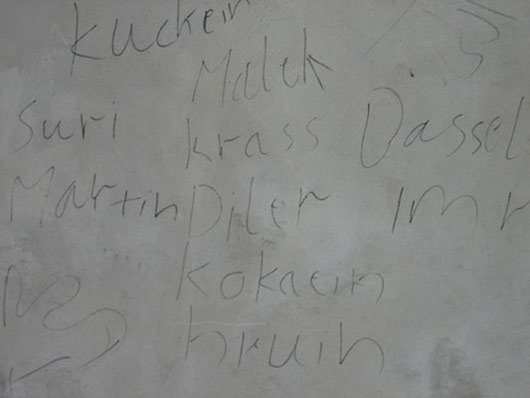 Kuckein
Malek
Suri Krass Dassel
Martin Diler Imr
kokaein
hruin